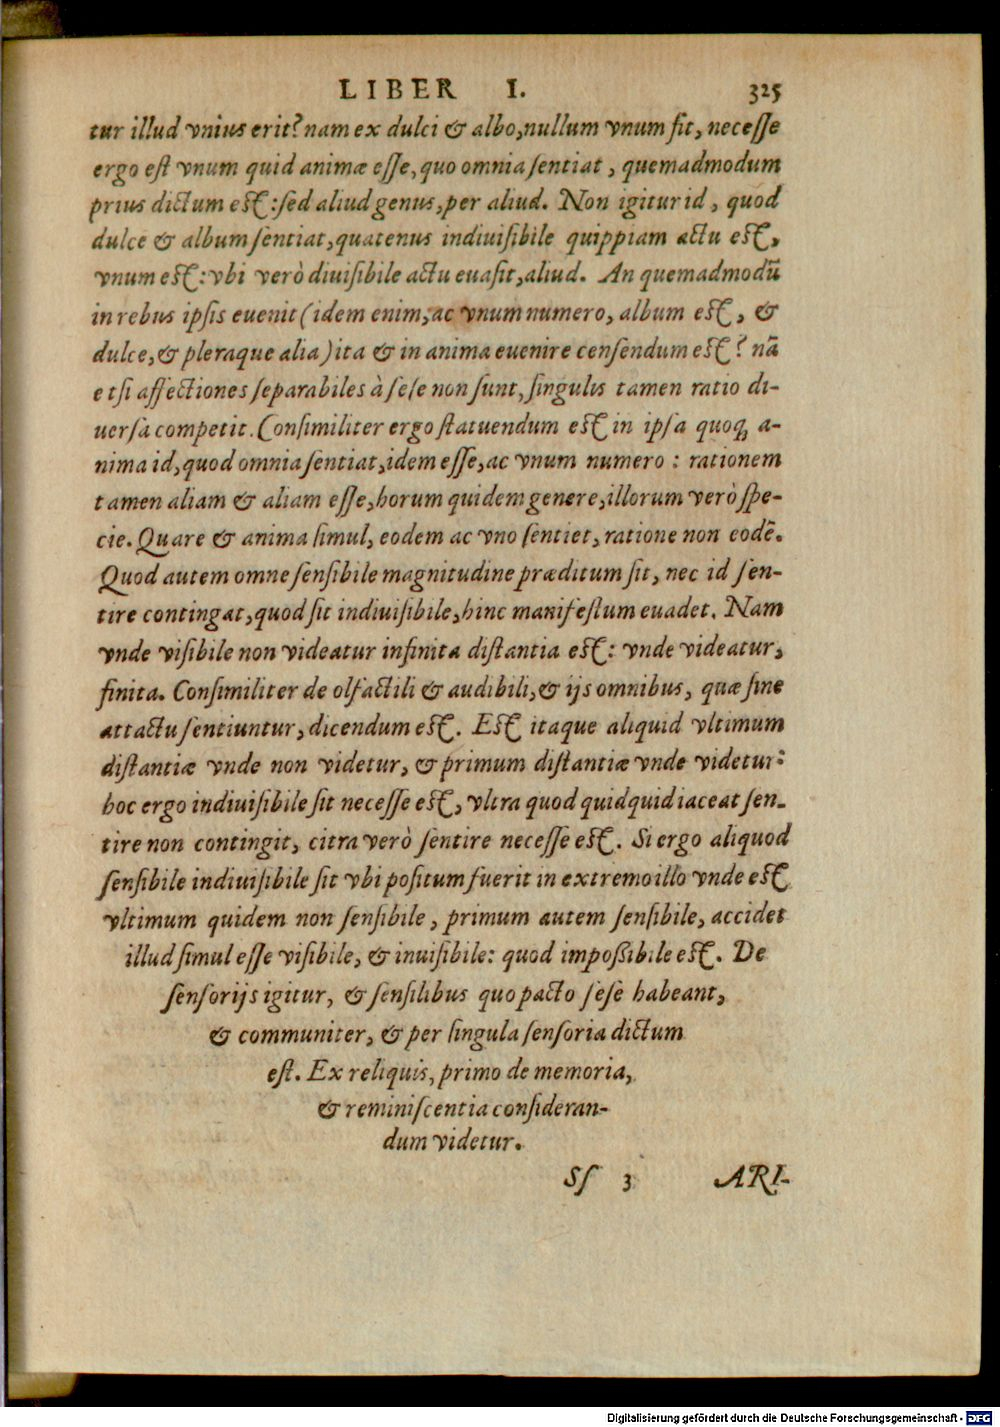 LIBER I. 325
tur illud vnius erit? nam ex dulci & albo, nullum vnum fit, necesse
ergo est vnum quid animæ esse, quo omnia sentiat, quemadmodum
prius dictum est: sed aliud genus, per aliud. Non igitur id, quod
dulce & album sentiat, quatenus indiuisibile quippiam actu est,
vnum est: vbi verò diuisibile actu euasit, aliud. An quemadmodũ
in rebus ipsis euenit (idem enim, ac vnum numero, album est, &
dulce, & pleraque alia) ita & in anima euenire censendum est? nã
etsi affectiones separabiles à sese non sunt, singulis tamen ratio di-
uersa competit. Consimiliter ergo statuendum est in ipsa quoq; a-
nima id, quod omnia sentiat, idem esse, ac vnum numero: rationem
tamen aliam & aliam esse, horum quidem genere, illorum verò spe-
cie. Quare & anima simul, eodem ac vno sentiet, ratione non eodẽ.
Quod autem omne sensibile magnitudine præditum sit, nec id sen-
tire contingat, quod sit indiuisibile, hinc manifestum euadet. Nam
vnde visibile non videatur infinita distantia est: vnde videatur,
finita. Consimiliter de olfactili & audibili, & ijs omnibus, quæ sine
attactu sentiuntur, dicendum est. Est itaque aliquid vltimum
distantiæ vnde non videtur, & primum distantiæ vnde videtur:
hoc ergo indiuisibile sit necesse est, vltra quod quidquid iaceat sen-
tire non contingit, citra verò sentire necesse est. Si ergo aliquod
sensibile indiuisibile sit vbi positum fuerit in extremo illo vnde est
vltimum quidem non sensibile, primum autem sensibile, accidet
illud simul esse visibile, & inuisibile: quod impossibile est. De
sensorijs igitur, & sensilibus quo pacto sese habeant,
& communiter, & per singula sensoria dictum
est. Ex reliquis, primo de memoria,
& reminiscentia consideran-
dum videtur.
Ss 3 ARI-
Digitalisierung gefördert durch die Deutsche Forschungsgemeinschaft - DFG